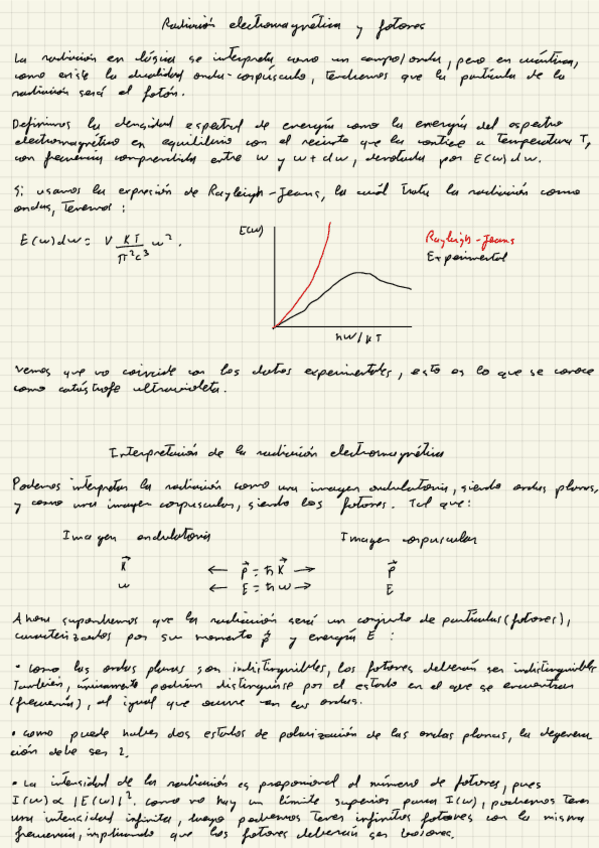 Radiación electromagnética y fotones
La radiación en clásica se interpreta como un campo/onda, pero en cuántica,
como existe la dualidad onda-corpúsculo, tendremos que la partícula de la
radiación será el fotón.
Definimos la densidad espectral de energía como la energía del espectro
electromagnético en equilibrio con el recinto que la contiene a Temperatura T,
con frecuencia comprendida entre w y w+dw, denotada por E(w)dw.
Si usamos la expresión de Rayleigh-Jeans, la cuál trata la radiación como
ondas, Tenemos:
E(w)dw = V KT/π²c³ w².
E(w)
Rayleigh-Jeans
Experimental
ħw/KT
Vemos que no coincide con los datos experimentales, esto es lo que se conoce
como catástrofe ultravioleta.
Interpretación de la radiación electromagnética
Podemos interpretar la radiación como una imagen ondulatoria, siendo ondas planas,
y como una imagen corpuscular, siendo los fotones. Tal que:
Imagen ondulatoria Imagen corpuscular
K⃗ ← p⃗ = ħK⃗ → p⃗
w ← E = ħw → E
Ahora supondremos que la radiación será un conjunto de partículas (fotones),
caracterizados por su momento p⃗ y energía E:
• Como las ondas planas son indistinguibles, los fotones deberán ser indistinguibles
También, únicamente podrían distinguirse por el estado en el que se encuentran
(frecuencia), al igual que ocurre en las ondas.
• Como puede haber dos estados de polarización de las ondas planas, la degenera
ción debe ser 2.
• La intensidad de la radiación es proporcional al número de fotones, pues
I(w) ∝ |E(w)|². Como no hay un límite superior para I(w), podremos tener
una intensidad infinita, luego podremos tener infinitos fotones con la misma
frecuencia, implicando que los fotones deberán ser bosones.